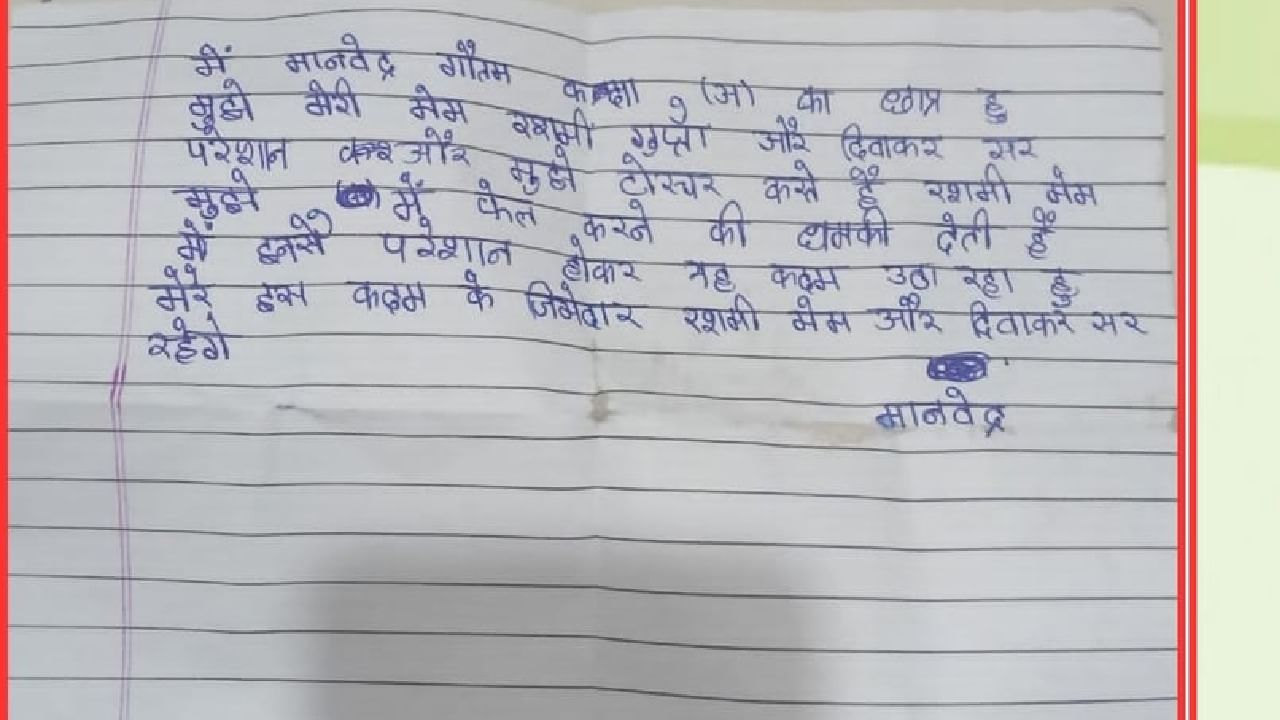 में मानवेद्र गौतम कक्षा 9 (अ) का छात्र हु
मुझे मेरी मेम रश्मी गुप्ता और दिवाकर सर
परेशान और मुझे टोरचर करते हैं रशमी मेम
मुझे में फेल करने की धमकी देती हैं
में इनसे परेशान होकर यह कदम उठा रहा हु
मेरे इस कदम के जिमेदार रशमी मेम और दिवाकर सर
रहेगे
मानवेद्र